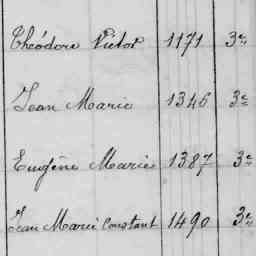 Théodore Victor 1171 3e
Jean Marie 1346 3e
Eugène Marie 1387 3e
Jean Marie Constant 1490 3e